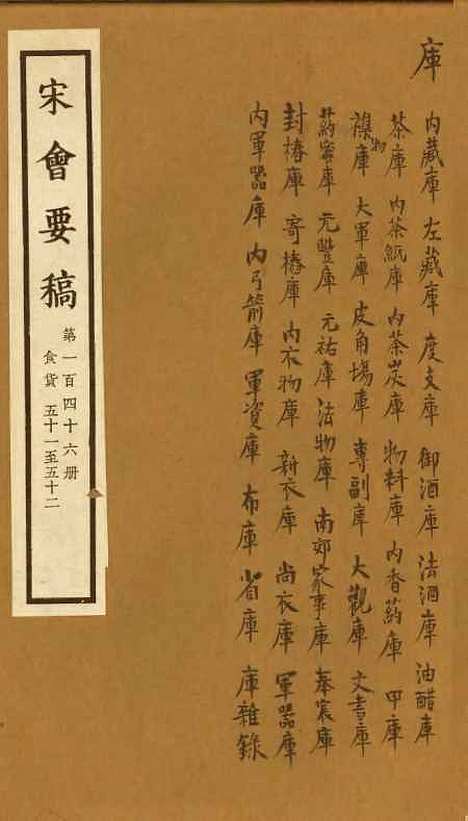 庫
内藏庫 左藏庫 度支庫 御酒庫 法酒庫 油醋庫
茶庫 内茶紙庫 内茶炭庫 物料庫 内香药庫 甲庫
襍物庫 大軍庫 皮角場庫 專副庫 大觀庫 文書庫
药蜜庫 元豐庫 元祐庫 法物庫 南郊家事庫 奉宸庫
封樁庫 寄樁庫 内衣物庫 新衣庫 尚衣庫 軍器庫
内軍器庫 内弓箭庫 軍資庫 布庫 省庫 庫雜錄
宋會要稿
第一百四十六册
食貨 五十一至五十二